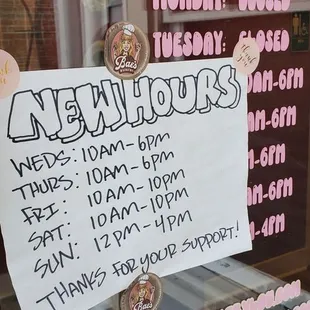 CLOSED
TUESDAY: CLOSED
Bae's
NEW HOURS
WEDS: 10AM-6PM
THURS: 10AM-6PM
FRI: 10AM-10PM
SAT: 10AM-10PM
SUN: 12PM-4PM
THANKS FOR YOUR SUPPORT!
AM-6PM
AM-6PM
M-6PM
M-6PM
M-4PM
Bae's